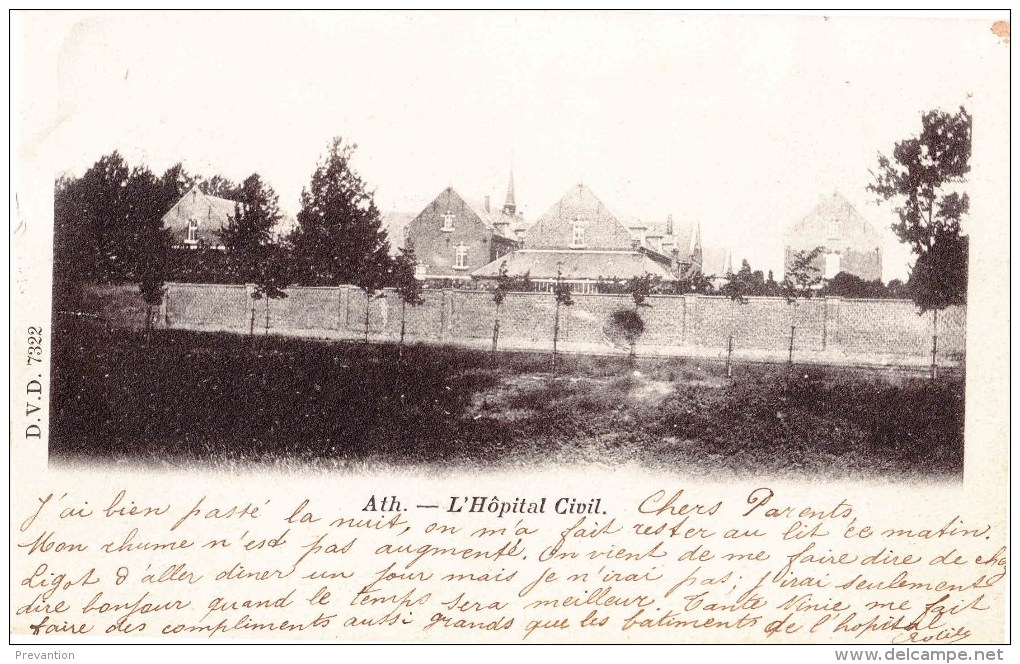 D.V.D. 7322
Ath. — L'Hôpital Civil.
Chers Parents,
J'ai bien passé la nuit, on m'a fait rester au lit ce matin.
Mon rhume n'est pas augmenté. On vient de me faire dire de chez
Ligot d'aller diner un jour mais je n'irai pas; j'irai seulement
dire bonjour quand le temps sera meilleur. Tante Ninie me fait
faire des compliments aussi grands que les batiments de l'hopital
Prevantion
http://www.delcampe.net